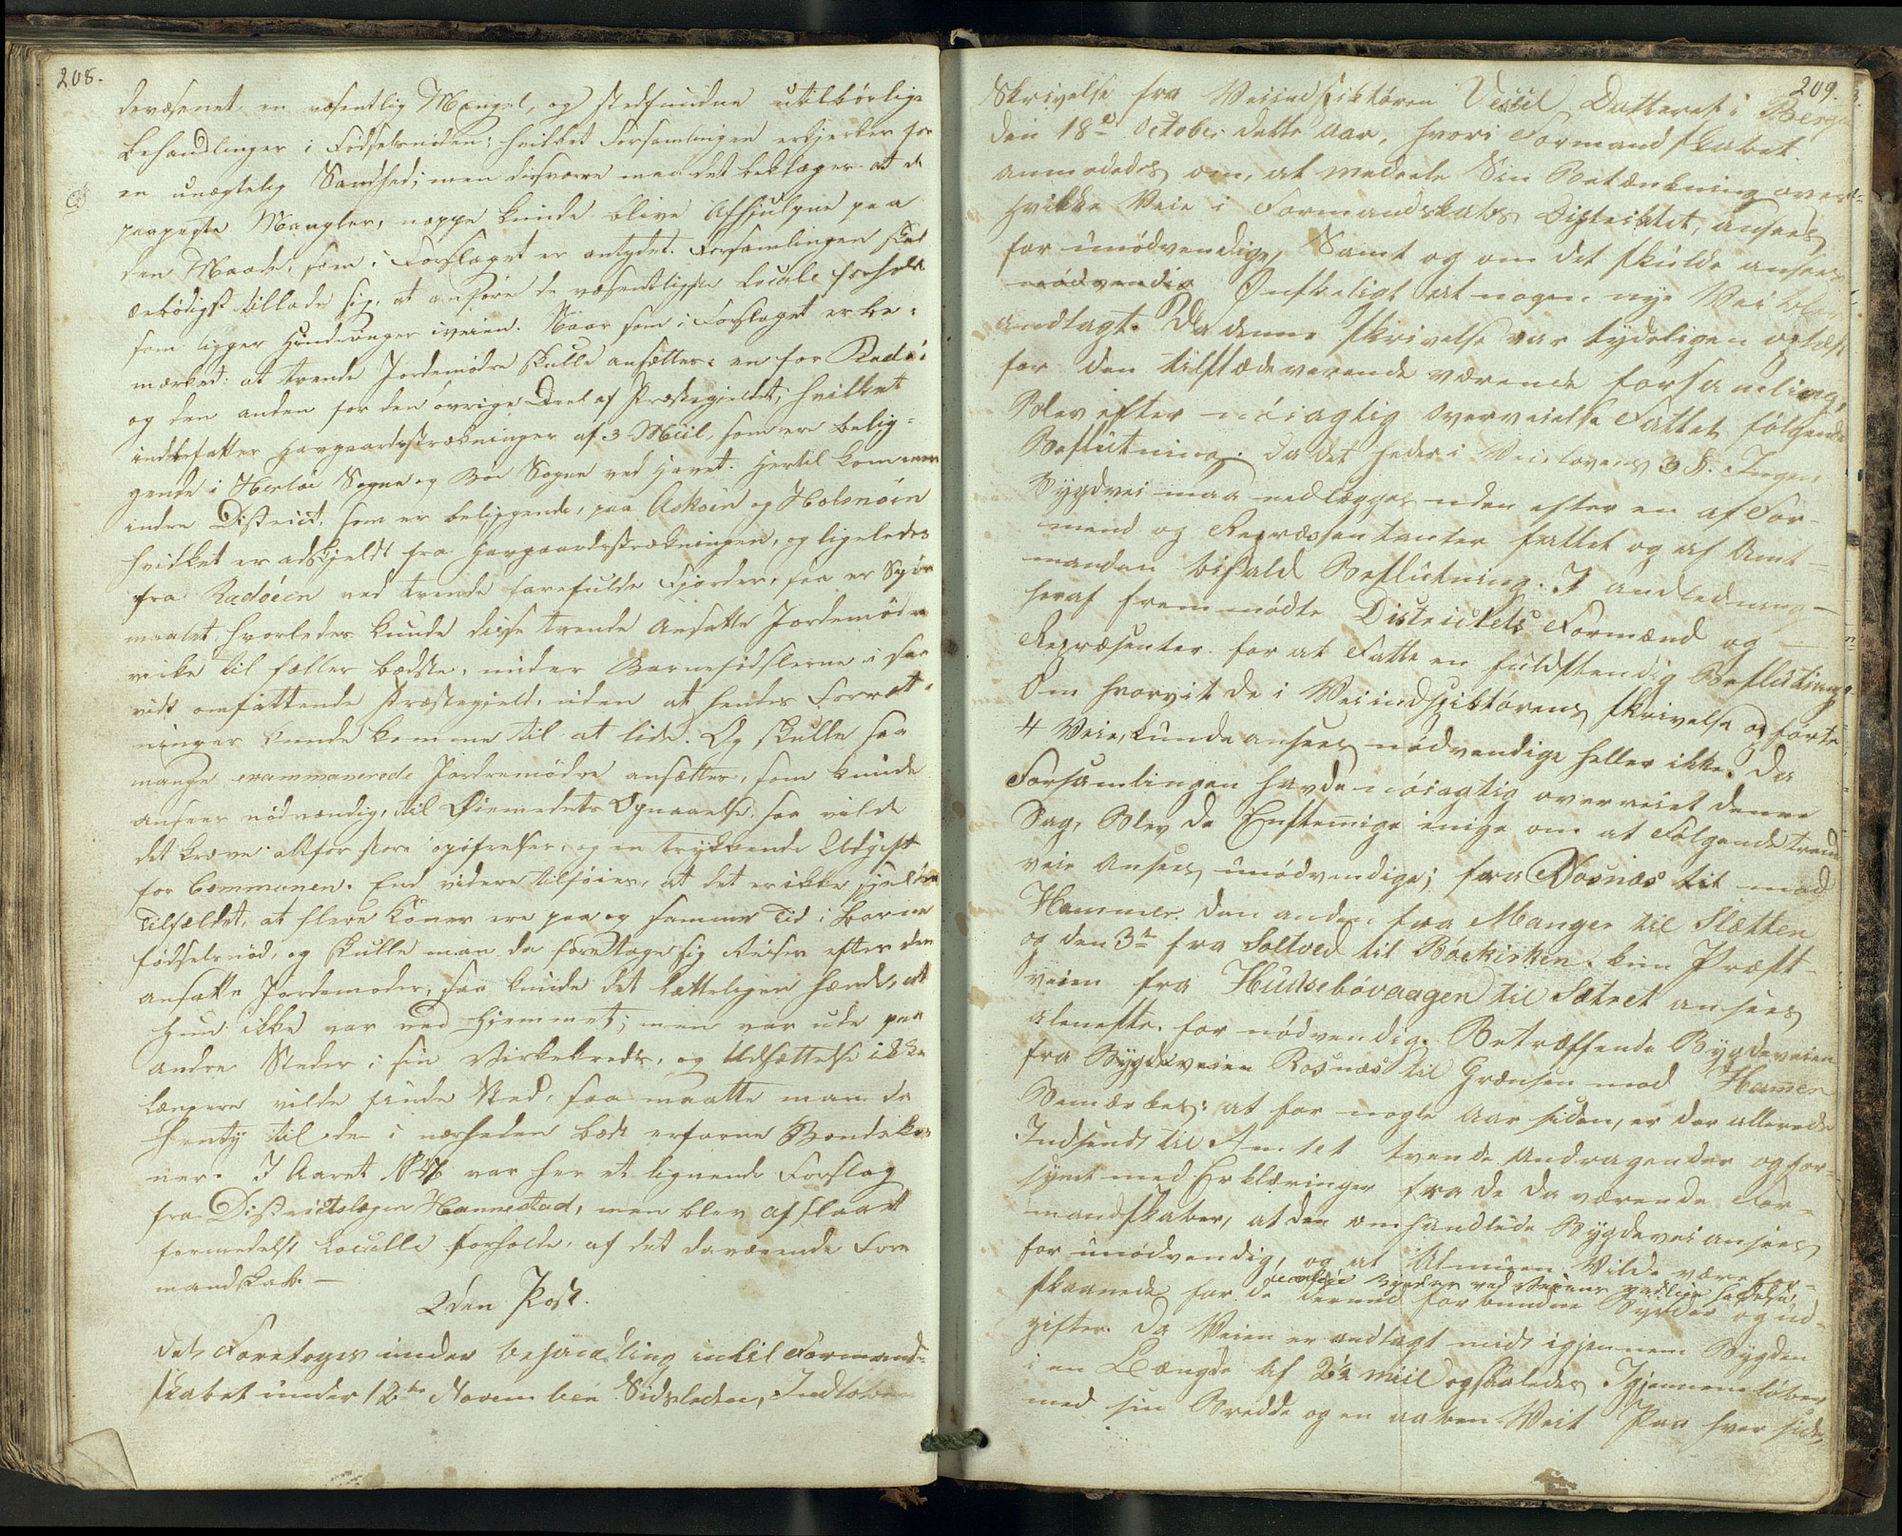 208.
devæsenet en væsentlig Mangel, og stedfindne utilbørlige
behandlinger i Fødselsnøden; hvilket Forsamlingen erkjerker for
en unægtelig Sandhed; men desværre man det beklager at de
paapegte Mangler, neppe kunde blive Afhjulpne paa
den Maade, som i Forslaget er antydet. Forsamlingen skal
ærbødigst tillade sig, at anføre de væsentligste Locale forholde
som ligger Hindringer iveien. Naar som i Forslaget er be-
mærked: at tvende Jordemødre skulle ansættes: en for Radø:
og den anden for den øvrige Deel af Præstegjeldet, hvilket
indbefatter havgaardsstrækninger af 3 Miil, som ere belig-
gende i Herlø Sogne og Bøe Sogne ved havet. Hertil kommer
indre District, som er beliggende, paa Askøen og Holsnøen
hvilket er adskjeldt fra havgaardsstrækningen, og ligeledes
fra Radøeen ved tvende farefulde Fjorder, saa er Spør
maalet, hvorledes kunde disse tvende Ansatte Jordemødre
virke til fælles bedste, under Barnefødslerne i saa
vidt omfattende Præstegjeld, uden at hendes Forret-
ninger kunde komme til at lide. Og skulle saa
mange examinerede Jordemødre ansættes, som kunde
ansees nødvendig, til Øiemedets Opnaaelse, saa vilde
det kræve altfor store opofrelser, og en trykkende Udgift
for Communen. End videre tilføies, at det er ikke sjelden
Tilfældet, at flere Koner ere paa og samme Tid i Barne
fødselsnød, og skulle man da foretage sig Reiser efter den
ansatte Jordemoder, saa kunde det lætteligen hænde, at
hun ikke var ved Hjemmet; men var ude paa
andre Steder i sin Virkekreds, og Udsættelse ikke
længere vilde finde Sted, saa maatte man da
henty til de i nærheden bedst erfarne Bondeko-
ner. I Aaret var her et lignende Forslag
fra Districtslægen Hannestad, men blev afslaaet
formedelst Locale forholde, af det daværende For-
mandskab. —
2den Post.
Det Foretoges under behandling indtil Formand-
skabet under 12te November Sidstleden, Indløben
209.
Skrivelse fra Veiindspiktøren Vessel Datteret i Bergen
den 18de October dette Aar, hvori Formandskabet
anmodedes om, at meddele Sin Betænkning over
hvilke Veie i Formandskabs Districktet, ansees
for unødvendige, Samt og om det skulde ansees
nødvendig Ønskeligt at nogen nye Vei blev
andlagt. Da denne skrivelse var tydeligen oplæst
for den tilstædeverende værende forsamling,
Blev efter nøiagtig Overveielse Fattet følgende
Beslutning. Da det heder i Veilovens 3 §. Ingen
Bygdvei maa nedlægges uden efter en af For-
mend og Repræsentanter fattet og af Amt-
manden bifald Beslutning. I andledning
heraf fremmødte Districktets Formænd og
Repræsenter. for at Fatte en fuldstendig Beslutning
Om hvorvit de i Veiindspiktørens skrivelse opførte
4 Veie, kunde ansees nødvendige heller ikke. Da
Forsamlingen havde nøiagtig overveiet denne
Sag, Blev de Enstemige enige om at Følgende trende
veie Ansees unødvendige; fra Rosnæs til mod
Hammer. den anden fra Manger til Sletten
og den 3de fra Soltved til Bøekirken. kun Præst-
veien fra Husebøvaagen til Sætret ansees
aleneste. for nødvendig. Betræffende Bygdeveien
fra Bygdeveien Rosnæs til Grænsen mod Hamer
Bemærkes: at for nogle Aar siden, er der allerede
Indsendt til Amtet tvende Andragender og for-
synet med Erklæringer fra de da værende For-
mandskaber, at den omhandlede Bygdevei ansees
for unødvendig, og at Almuen Vilde være for-
skaanede for de dermed forbundne Byrder og ud-
gifter. Da Veien er andlagt midt igjennem Bygden
i en Længde af 2¼ miil og saaledes Igjennemløber
med sin Bredde og en aaben Veit Paa hver side,